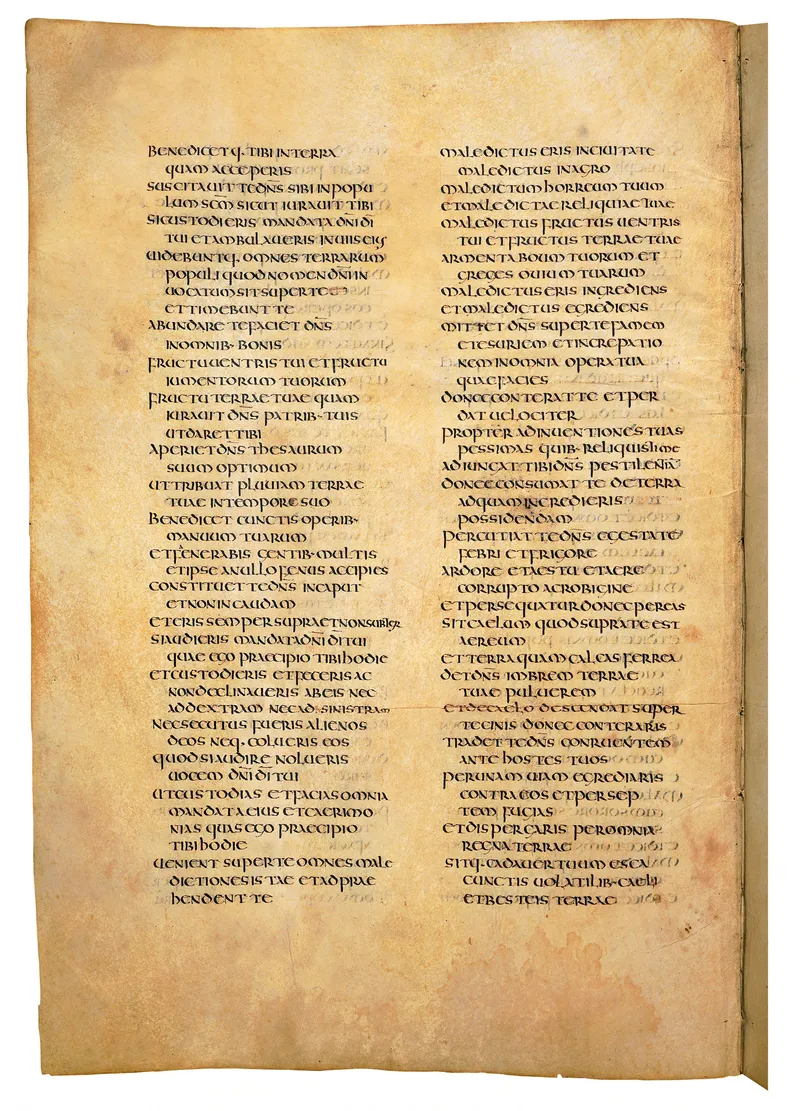 BENEDICETQ· TIBI INTERRA
QUAM ACCEPERIS
SUSCITAUIT TEDN̄S SIBI INPOPU
LUM SC̄M SICUT IURAUIT TIBI
SICUSTODIERIS MANDATA DN̄I DĪ
TUI ETAMBULAUERIS INUIIS EIUS
UIDEBUNTQ· OMNES TERRARUM
POPULI QUOD NOMEN DN̄I IN
UOCATUM SIT SUPERTE
ET TIMEBUNT TE
ABUNDARE TEFACIET DN̄S
INOMNIB· BONIS
FRUCTUUENTRIS TUI ET FRUCTU
IUMENTORUM TUORUM
FRUCTU TERRAE TUAE QUAM
IURAUIT DN̄S PATRIB· TUIS
UTDARET TIBI
APERIET DN̄S THESAURUM
SUUM OPTIMUM
UTTRIBUAT PLUUIAM TERRAE
TUAE INTEMPORE SUO
BENEDICET CUNCTIS OPERIB·
MANUUM TUARUM
ET FENERABIS GENTIB· MULTIS
ET IPSE ANULLO FENUS ACCIPIES
CONSTITUET TEDN̄S INCAPUT
ET NON IN CAUDAM
ET ERIS SEMPER SUPRA ET NON SUBTER
SIAUDIERIS MANDATA DN̄I DĪ TUI
QUAE EGO PRAECIPIO TIBI HODIE
ET CUSTODIERIS ET FECERIS AC
NON DECLINAUERIS ABEIS NEC
ADDEXTRAM NEC AD SINISTRAM
NEC SECUTUS FUERIS ALIENOS
DEOS NEQ· COLUERIS EOS
QUOD SI AUDIRE NOLUERIS
UOCEM DN̄I DĪ TUI
UT CUSTODIAS ET FACIAS OMNIA
MANDATA EIUS ET CAERIMO
NIAS QUAS EGO PRAECIPIO
TIBI HODIE
UENIENT SUPERTE OMNES MALE
DICTIONES ISTAE ET ADPRAE
HENDENT TE
MALEDICTUS ERIS INCIUITATE
MALEDICTUS INAGRO
MALEDICTUM HORREUM TUUM
ET MALEDICTAE RELIQUIAE TUAE
MALEDICTUS FRUCTUS UENTRIS
TUI ET FRUCTUS TERRAE TUAE
ARMENTA BOUM TUORUM ET
GREGES OUIUM TUARUM
MALEDICTUS ERIS INGREDIENS
ET MALEDICTUS EGREDIENS
MITTET DN̄S SUPERTE FAMEM
ET ESURIEM ET INCREPATIO
NEM INOMNIA OPERA TUA
QUAE FACIES
DONEC CONTERAT TE ET PER
DAT UELOCITER
PROPTER ADINUENTIONES TUAS
PESSIMAS QUIB· RELIQUISTI ME
ADIUNGAT TIBI DN̄S PESTILENTIĀ
DONEC CONSUMAT TE DE TERRA
ADQUAM INGREDIERIS
POSSIDENDAM
PERCUTIAT TEDN̄S EGESTATE
FEBRI ET FRIGORE
ARDORE ET AESTU ET AERE
CORRUPTO AC ROBIGINE
ET PERSEQUATUR DONEC PEREAS
SIT CAELUM QUOD SUPRA TE EST
AEREUM
ET TERRA QUAM CALCAS FERREA
DET DN̄S IMBREM TERRAE
TUAE PULUEREM
ET DECAELO DESCENDAT SUPER
TE CINIS DONEC CONTERARIS
TRADET TEDN̄S CONRUENTEM
ANTE HOSTES TUOS
PER UNAM UIAM EGREDIARIS
CONTRA EOS ET PER SEP
TEM FUGIAS
ET DISPERGARIS PER OMNIA
REGNA TERRAE
SITQ· CADAUER TUUM ESCA
CUNCTIS UOLATILIB· CAELI
ET BESTEIS TERRAE